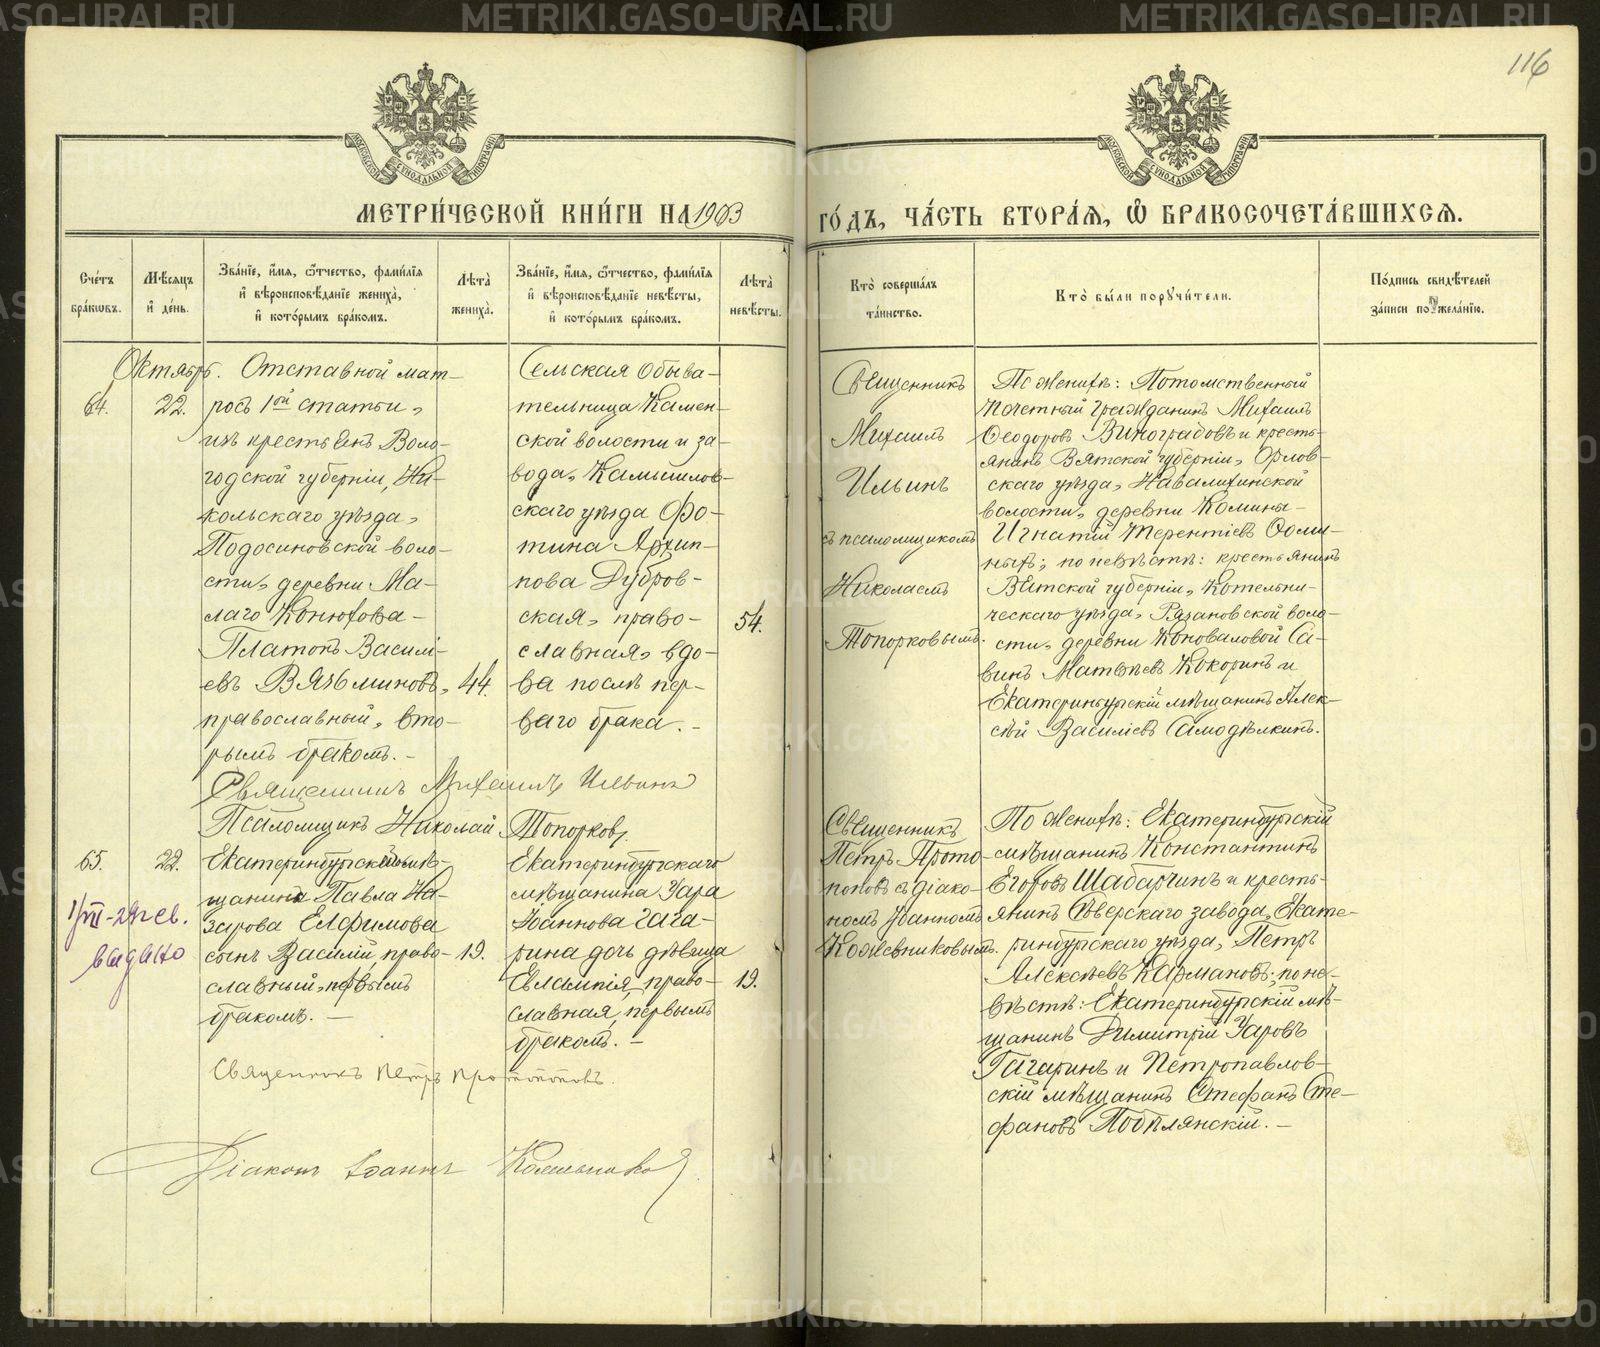 116
МЕТРИ́ЧЕСКОЙ КНИ́ГИ НА 1903
ГО́ДЪ, ЧА́СТЬ ВТОРА́Я, Ѽ БРАКОСОЧЕТА́ВШИХСЯ.
Сче́тъ бра́кѡвъ.
Мѣ́сяцъ и҆ де́нь.
Зва́нїе, и҆́мя, ѻ҆́тчество, фами́лїя
и҆ вѣроисповѣ́данїе жениха̀,
и҆ кото́рымъ бра́комъ.
Лѣ́та̀ жениха̀.
Зва́нїе, и҆́мя, ѻ҆́тчество, фами́лїя
и҆ вѣроисповѣ́данїе невѣ́сты,
и҆ кото́рымъ бра́комъ.
Лѣ́та̀ невѣ́сты.
Кто̀ соверша́лъ та́инство.
Кто̀ бы́ли поручи́тели.
По́дпись свидѣ́телей
за́писи по жела́нїю.
Октябрь.
64.
22.
Отставной мат-
росъ 1ой статьи,
изъ крестьянъ Воло-
годской губерніи, Ни-
кольскаго уѣзда,
Подосиновской воло-
сти, деревни Ма-
лаго Конюхова
Платонъ Василі-
евъ Вязьминовъ,
православный, вто-
рымъ бракомъ. -
44.
Сельская обыва-
тельница Камен-
ской волости и за-
вода, Камышлов-
скаго уѣзда Фо-
тина Архип-
пова Дубров-
ская, право-
славная, вдо-
ва послѣ пер-
ваго брака. -
54.
Священникъ
Михаилъ
Ильинъ
съ псаломщикомъ
Николаемъ
Топорковымъ.
По женихѣ: Потомственный
почетный гражданинъ Михаилъ
Ѳеодоровъ Виноградовъ и кресть-
янинъ Вятской губерніи, Орлов-
скаго уѣзда, Навалихинской
волости, деревни Комины
Игнатій Терентіевъ
по невѣстѣ: крестьянинъ
Вятской губерніи, Котельни-
ческаго уѣзда, Рязановской воло-
сти, деревни Коноваловой Са-
винъ Матвѣевъ Кокоринъ и
Екатеринбургскій мѣщанинъ Алек-
сѣй Василіевъ Самодѣлкинъ.
Священникъ Михаилъ Ильинъ
Псаломщикъ Николай Топорковъ.
65.
22.
Екатеринбургскаго мѣ-
щанина Павла На-
зарова Елфимова
сынъ Василій, право-
славный, первымъ
бракомъ. —
19.
Екатеринбургскаго
мѣщанина Уара
Іоаннова Гага-
рина дочь дѣвица
Евлампія, право-
славная, первымъ
бракомъ. —
19.
Священникъ
Петръ Прото-
поповъ съ діако-
номъ Іоанномъ
Кожевниковымъ.
По женихѣ: Екатеринбургскій
мѣщанинъ Константинъ
Егоровъ Шабарчинъ и кресть-
янинъ Сѣверскаго завода, Екате-
ринбургскаго уѣзда, Петръ
Алексѣевъ Кармановъ; по не-
вѣстѣ: Екатеринбургскій мѣ-
щанинъ Димитрій Уаровъ
Гагаринъ и Петропавлов-
скій мѣщанинъ Стефанъ Сте-
фановъ Подѣлянскій. —
выдано
Священникъ Петръ Протопоповъ.
Діаконъ Іоаннъ Кожевниковъ
METRIKI.GASO-URAL.RU